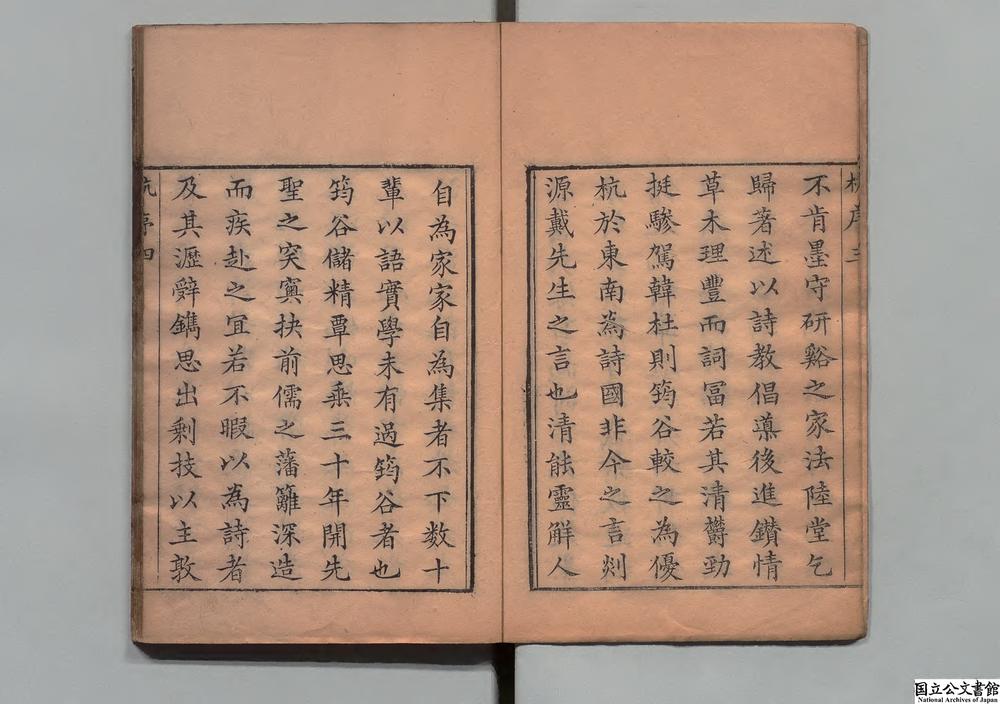 杭序三
不肯墨守研谿之家法陸堂乞
歸著述以詩教倡導後進鑽情
草木理豐而詞冨若其清欎勁
挺驂駕韓杜則筠谷較之為優
杭於東南為詩國非今之言剡
源戴先生之言也清能靈解人
自為家家自為集者不下数十
輩以語實學未有過筠谷者也
筠谷儲精覃思垂三十年開先
聖之突寞抉前儒之藩籬深造
而疾赴之冝若不暇以為詩者
及其瀝辭鐫思出剩技以主敦
杭序四
国立公文書館
National Archives of Japan